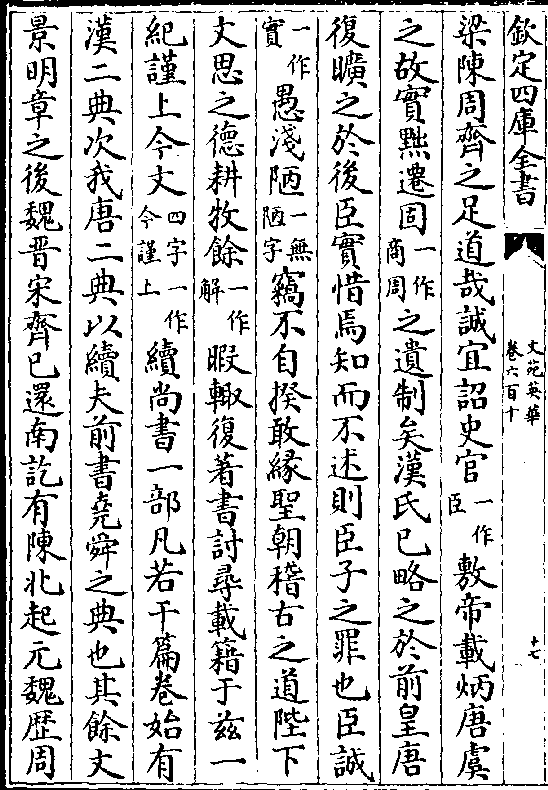 欽定四庫全書
文苑英華
卷六百十
十七
梁陳周齊之足道哉誠宜詔史官一作臣敷帝載炳唐虞
之故實黜遷固一作商周之遺制矣漢氏已略之於前皇唐
復曠之於後臣實惜焉知而不述則臣子之罪也臣誠
一作實愚淺陋一無陋字竊不自揆敢緣聖朝稽古之道陛下
文思之德耕牧餘一作解暇輙復著書討尋載籍于兹一
紀謹上今文四字一作今謹上續尚書一部凡若干篇卷始有
漢二典次我唐二典以續夫前書堯舜之典也其餘文
景明章之後魏晋宋齊已還南訖有陳北起元魏歴周